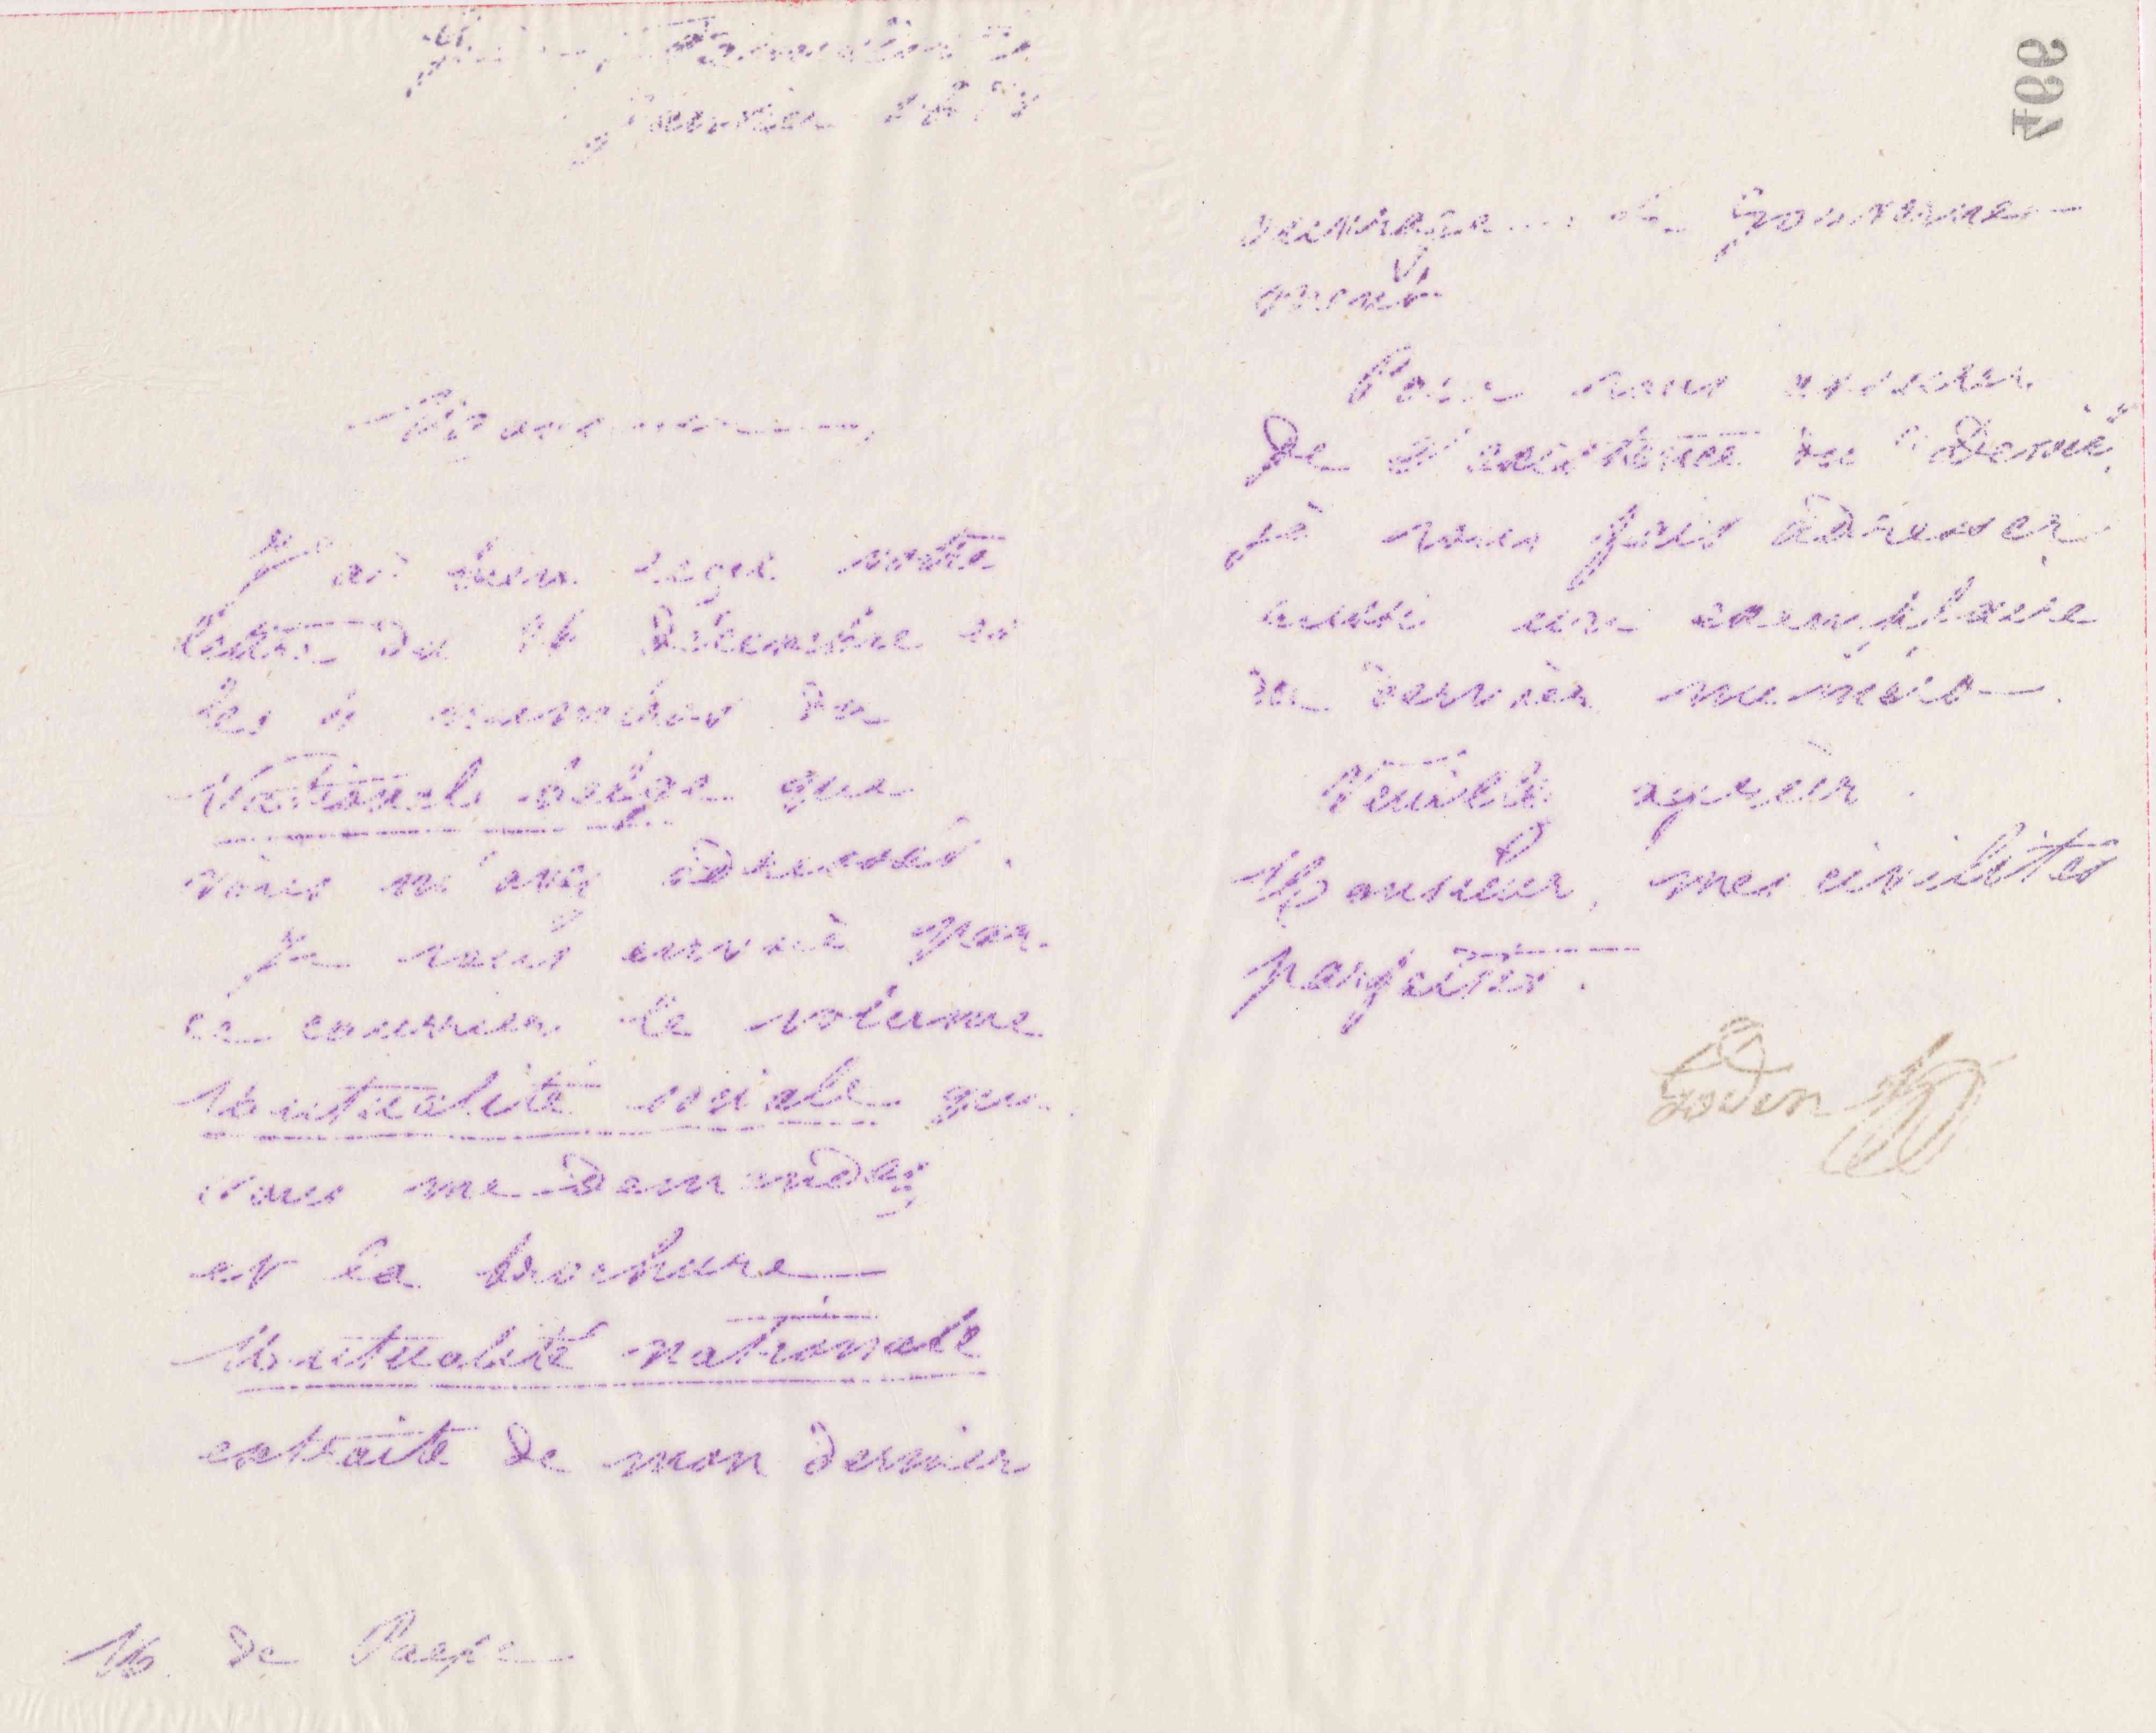 Familistère
Janvier
Monsieur,
J'ai bien reçu votre
lettre du Décembre et
les numéros du
National belge que
vous m'avez adressés.
Je vous envoie par
ce courrier le volume
Mutualité sociale que
vous me demandez
et la brochure
Mutualité nationale
extraite de mon dernier
M. de Paepe
466
ouvrage le Gouverne-
ment
Pour vous assurer
de l'existence du "Devoir"
je vous fais adresser
aussi un exemplaire
du dernier numéro.
Veuillez agréer,
Monsieur, mes civilités
parfaites.
Godin